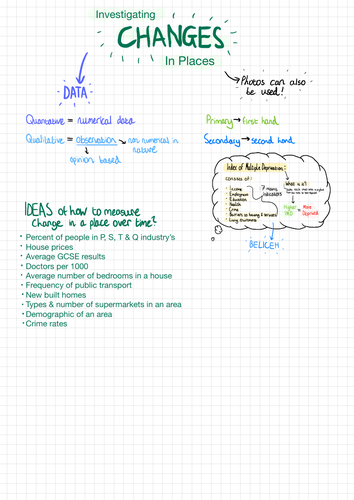 Investigating
CHANGES
In Places
DATA
Photos can also
be used!
Quantative = numerical data
Qualitative = observation → non-numerical in
nature
opinion based
Primary → first hand
Secondary → second hand
Index of Multiple Deprivation:
consists of:
• Income
• Employment
• Education
• Health
• Crime
• Barriers to housing & services
• Living Environment
7 Mains
indicators
What is it?
Higher
IMD
= More
Deprived
BELICEH
IDEAS of how to measure
change in a place over time?
• Percent of people in P, S, T & Q industry's
• House prices
• Average GCSE results
• Doctors per 1000
• Average number of bedrooms in a house
• Frequency of public transport
• New built homes
• Types & number of supermarkets in an area
• Demographic of an area
• Crime rates